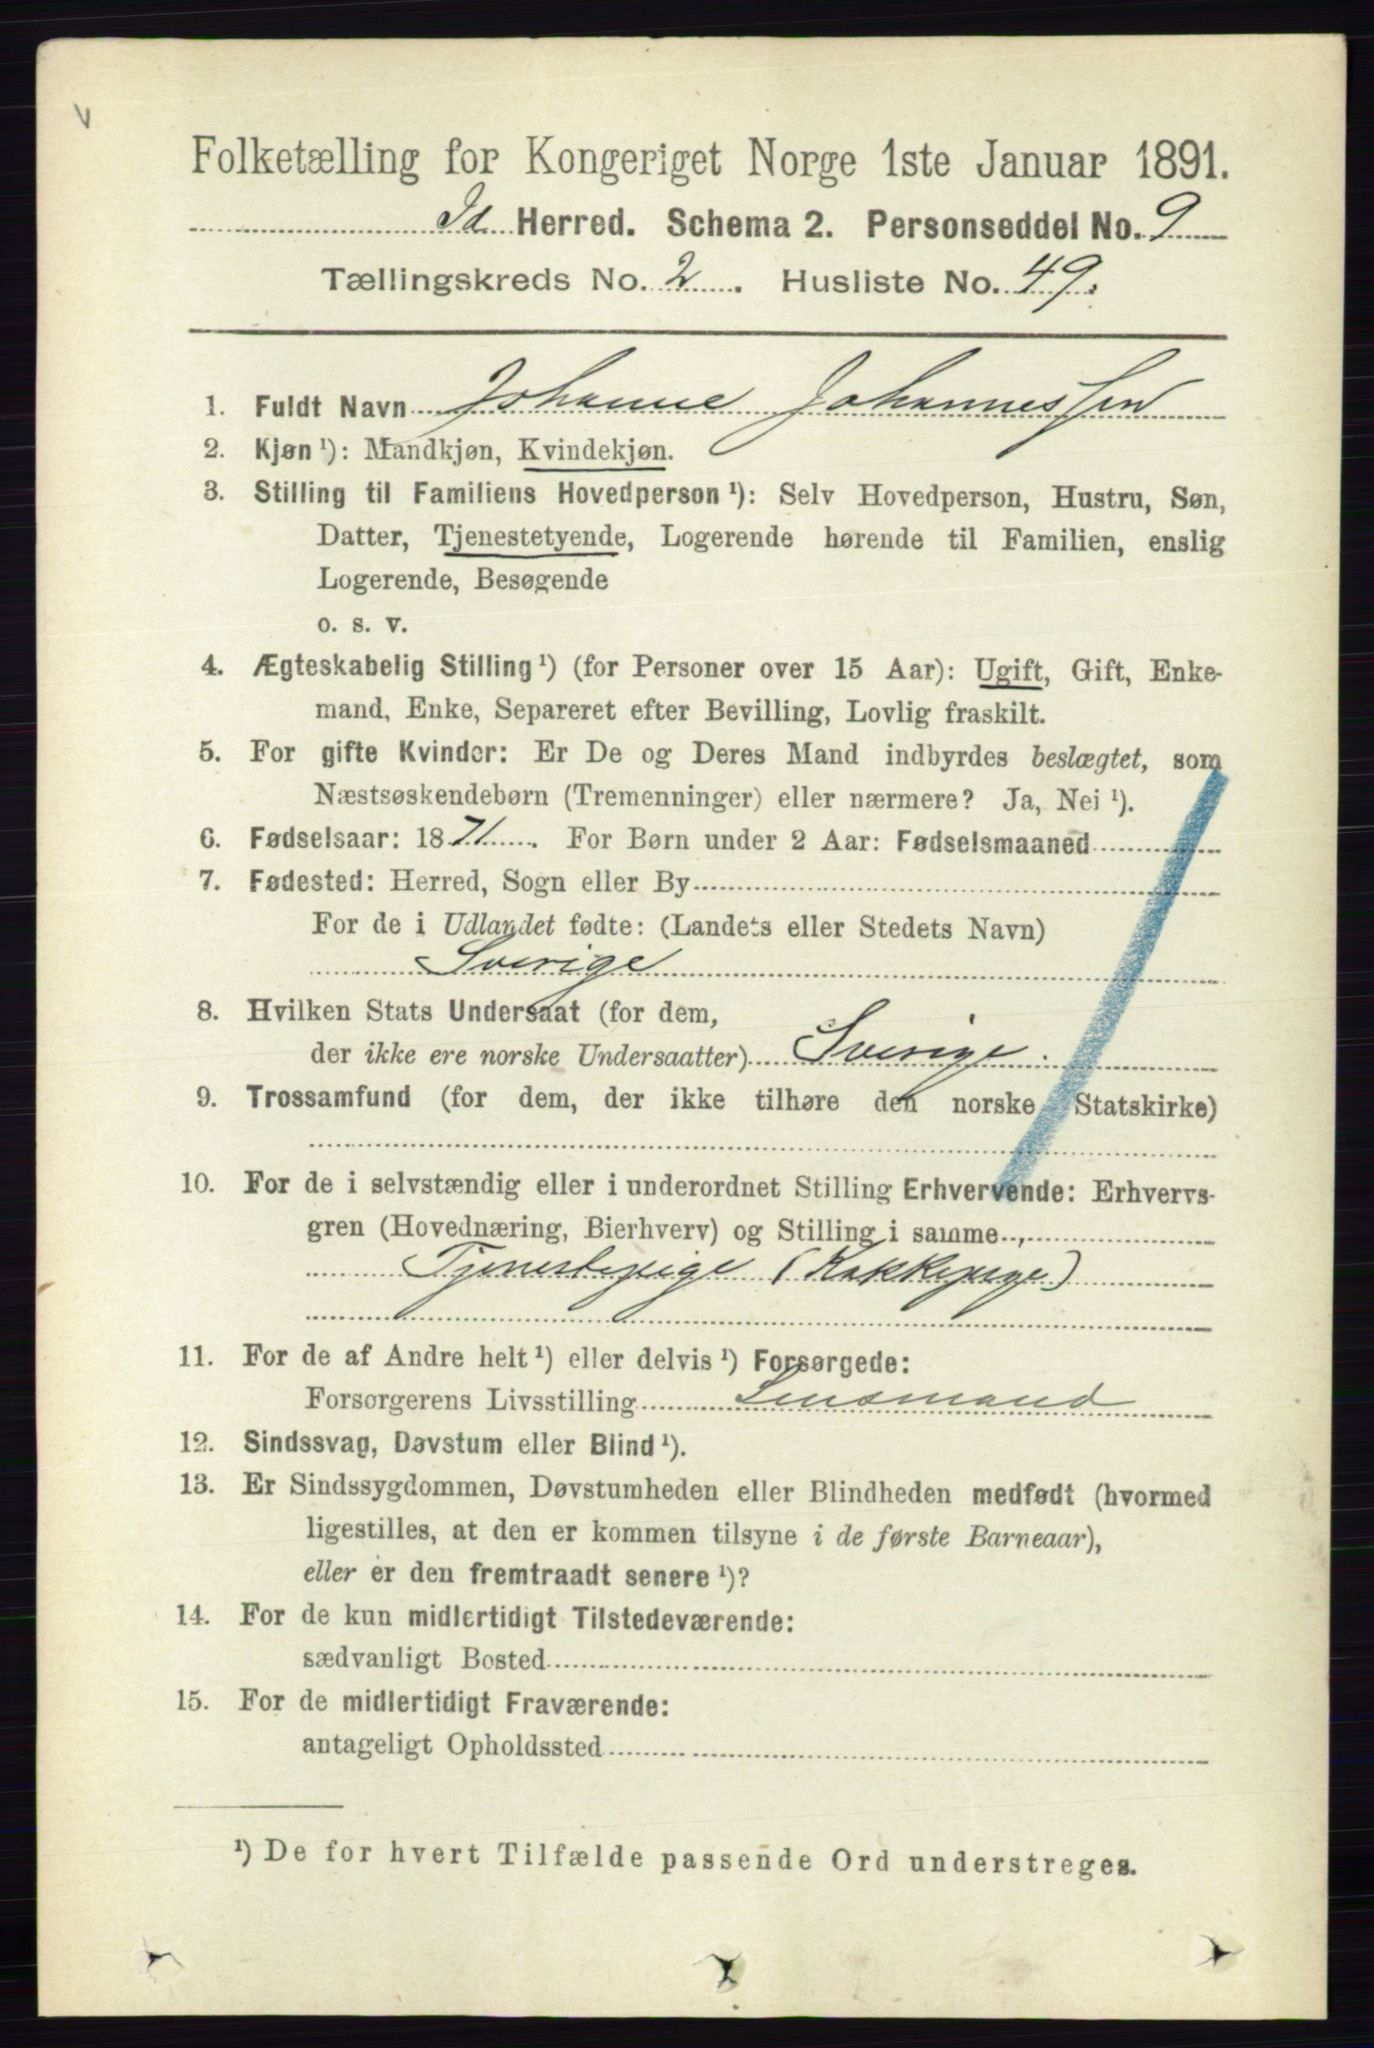 Folketælling for Kongeriget Norge 1ste Januar 1891.
Id Herred. Schema 2. Personseddel No. 9
Tællingskreds No. 2. Husliste No. 49.
1. Fuldt Navn Johanne Johannessen
2. Kjøn ¹): Mandkjøn, Kvindekjøn.
3. Stilling til Familiens Hovedperson ¹): Selv Hovedperson, Hustru, Søn,
Datter, Tjenestetyende, Logerende hørende til Familien, enslig
Logerende, Besøgende
o. s. v.
4. Ægteskabelig Stilling ¹) (for Personer over 15 Aar): Ugift, Gift, Enke-
mand, Enke, Separeret efter Bevilling, Lovlig fraskilt.
5. For gifte Kvinder: Er De og Deres Mand indbyrdes beslægtet, som
Næstsøskendebørn (Tremenninger) eller nærmere? Ja, Nei ¹).
6. Fødselsaar: 1871. For Børn under 2 Aar: Fødselsmaaned
7. Fødested: Herred, Sogn eller By
For de i Udlandet fødte: (Landets eller Stedets Navn)
Sverige
8. Hvilken Stats Undersaat (for dem,
der ikke ere norske Undersaatter) Sverige.
9. Trossamfund (for dem, der ikke tilhøre den norske Statskirke)
10. For de i selvstændig eller i underordnet Stilling Erhvervende: Erhvervs-
gren (Hovednæring, Bierhverv) og Stilling i samme
Tjenestepige (Kokkepige)
11. For de af Andre helt ¹) eller delvis ¹) Forsørgede:
Forsørgerens Livsstilling Lensmand
12. Sindssvag, Døvstum eller Blind ¹).
13. Er Sindssygdommen, Døvstumheden eller Blindheden medfødt (hvormed
ligestilles, at den er kommen tilsyne i de første Barneaar),
eller er den fremtraadt senere ¹)?
14. For de kun midlertidigt Tilstedeværende:
sædvanligt Bosted
15. For de midlertidigt Fraværende:
antageligt Opholdssted
¹) De for hvert Tilfælde passende Ord understreges.